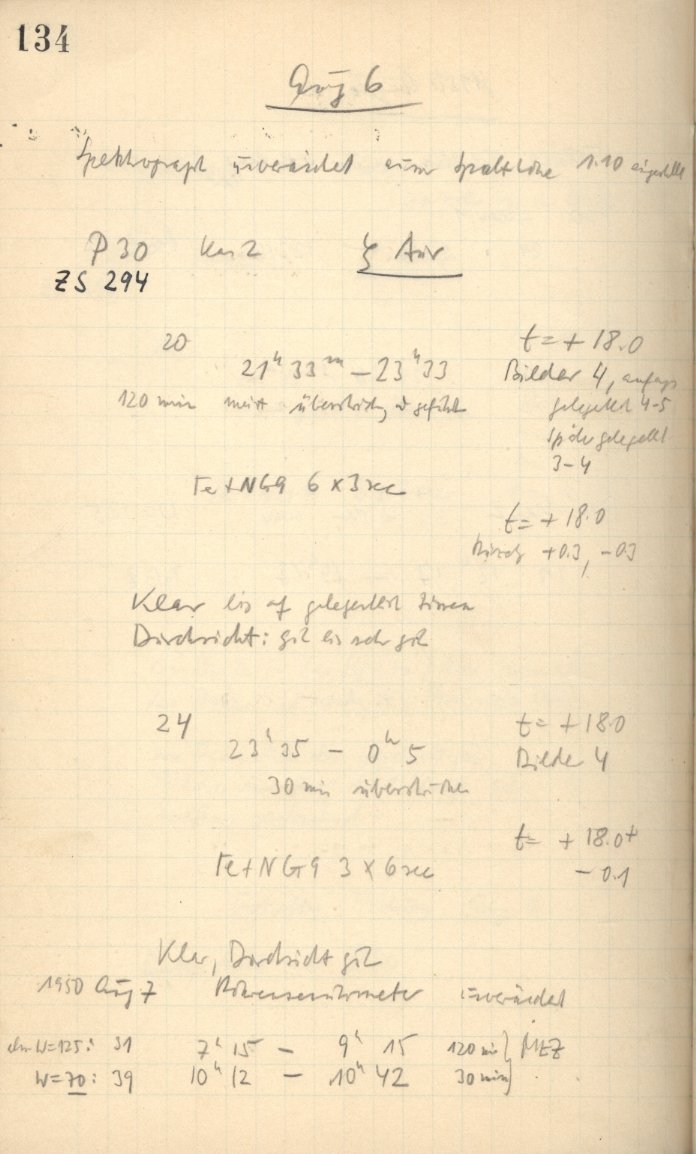 134
Aug 6
Spektrograph unverändert nur Spalthöhe 1.10 eingestellt
P 30 Kas 2 ζ Aur
ZS 294
20 t = + 18.0
21ʰ 33ᵐ – 23ʰ 33 Bilder 4, anfangs
120 min meist überstrichen, gelegentl 4-5
später gelegentl
3-4
Fe + NG9 6 x 3 sec
t = + 18.0
+0.3, -0.3
Klar bis auf gelegentlich Zirren
Durchsicht: gut bis sehr gut
24 t = + 18.0
23ʰ 35 – 0ʰ 5 Bilder 4
30 min überstrichen
t = + 18.0+
Fe + NG9 3 x 6 sec - 0.1
Klar, Durchsicht gut
1950 Aug 7 Röhrensensitometer unverändert
W=125: 31 7ʰ 15 – 9ʰ 15 120 min } MEZ
W=70: 39 10ʰ 12 – 10ʰ 42 30 min